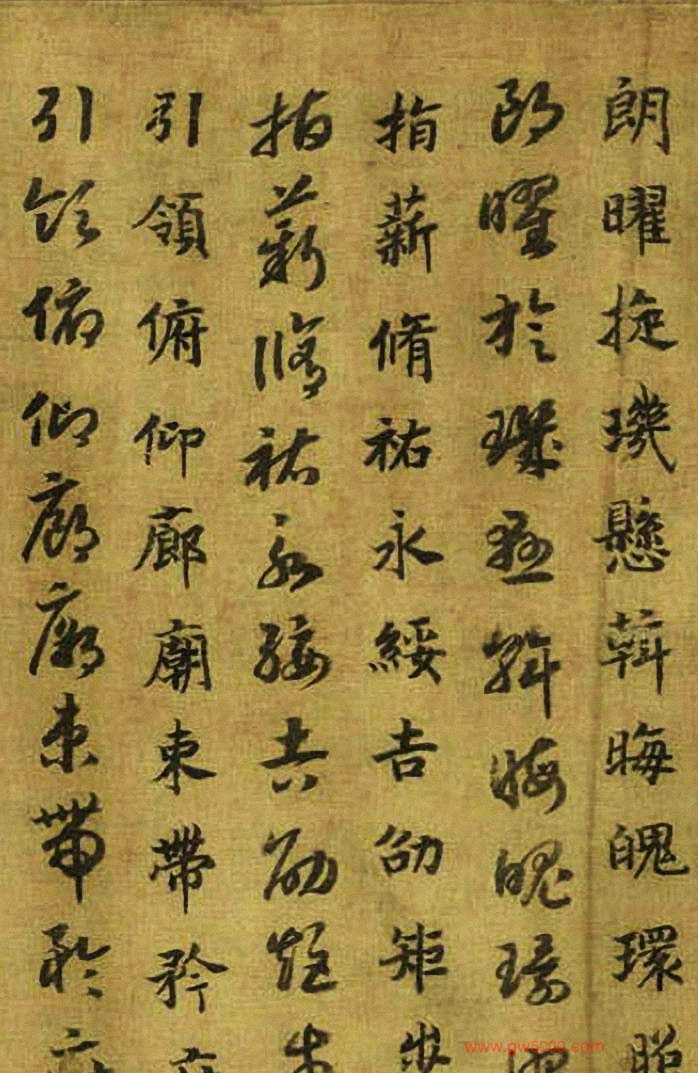 朗曜旋璣懸斡晦魄環
朗曜旋璣懸斡晦魄環
指薪脩祐永綏吉劭矩步
指薪脩祐永綏吉劭矩步
引領俯仰廊廟束帶矜
引領俯仰廊廟束帶矜
www.gw5000.com